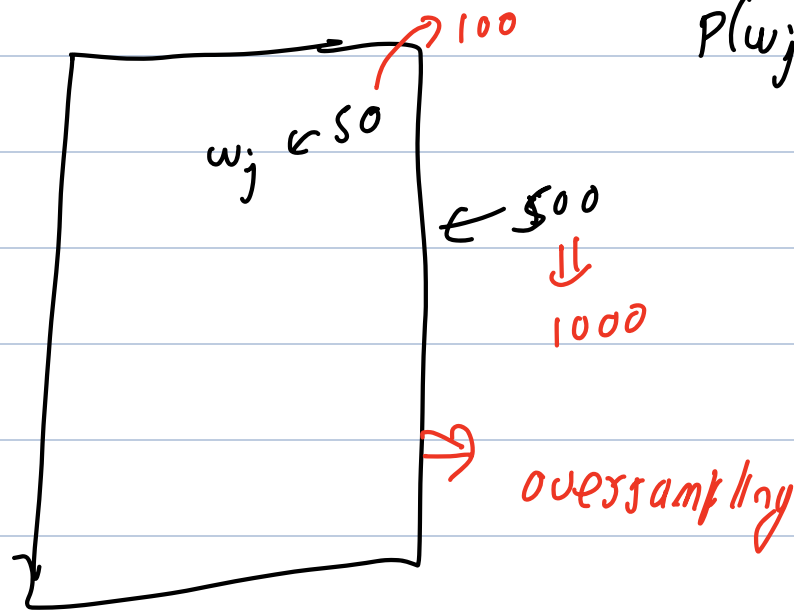 100
P(wj
wj ← 50
← 500
⇓
1000
oversampling